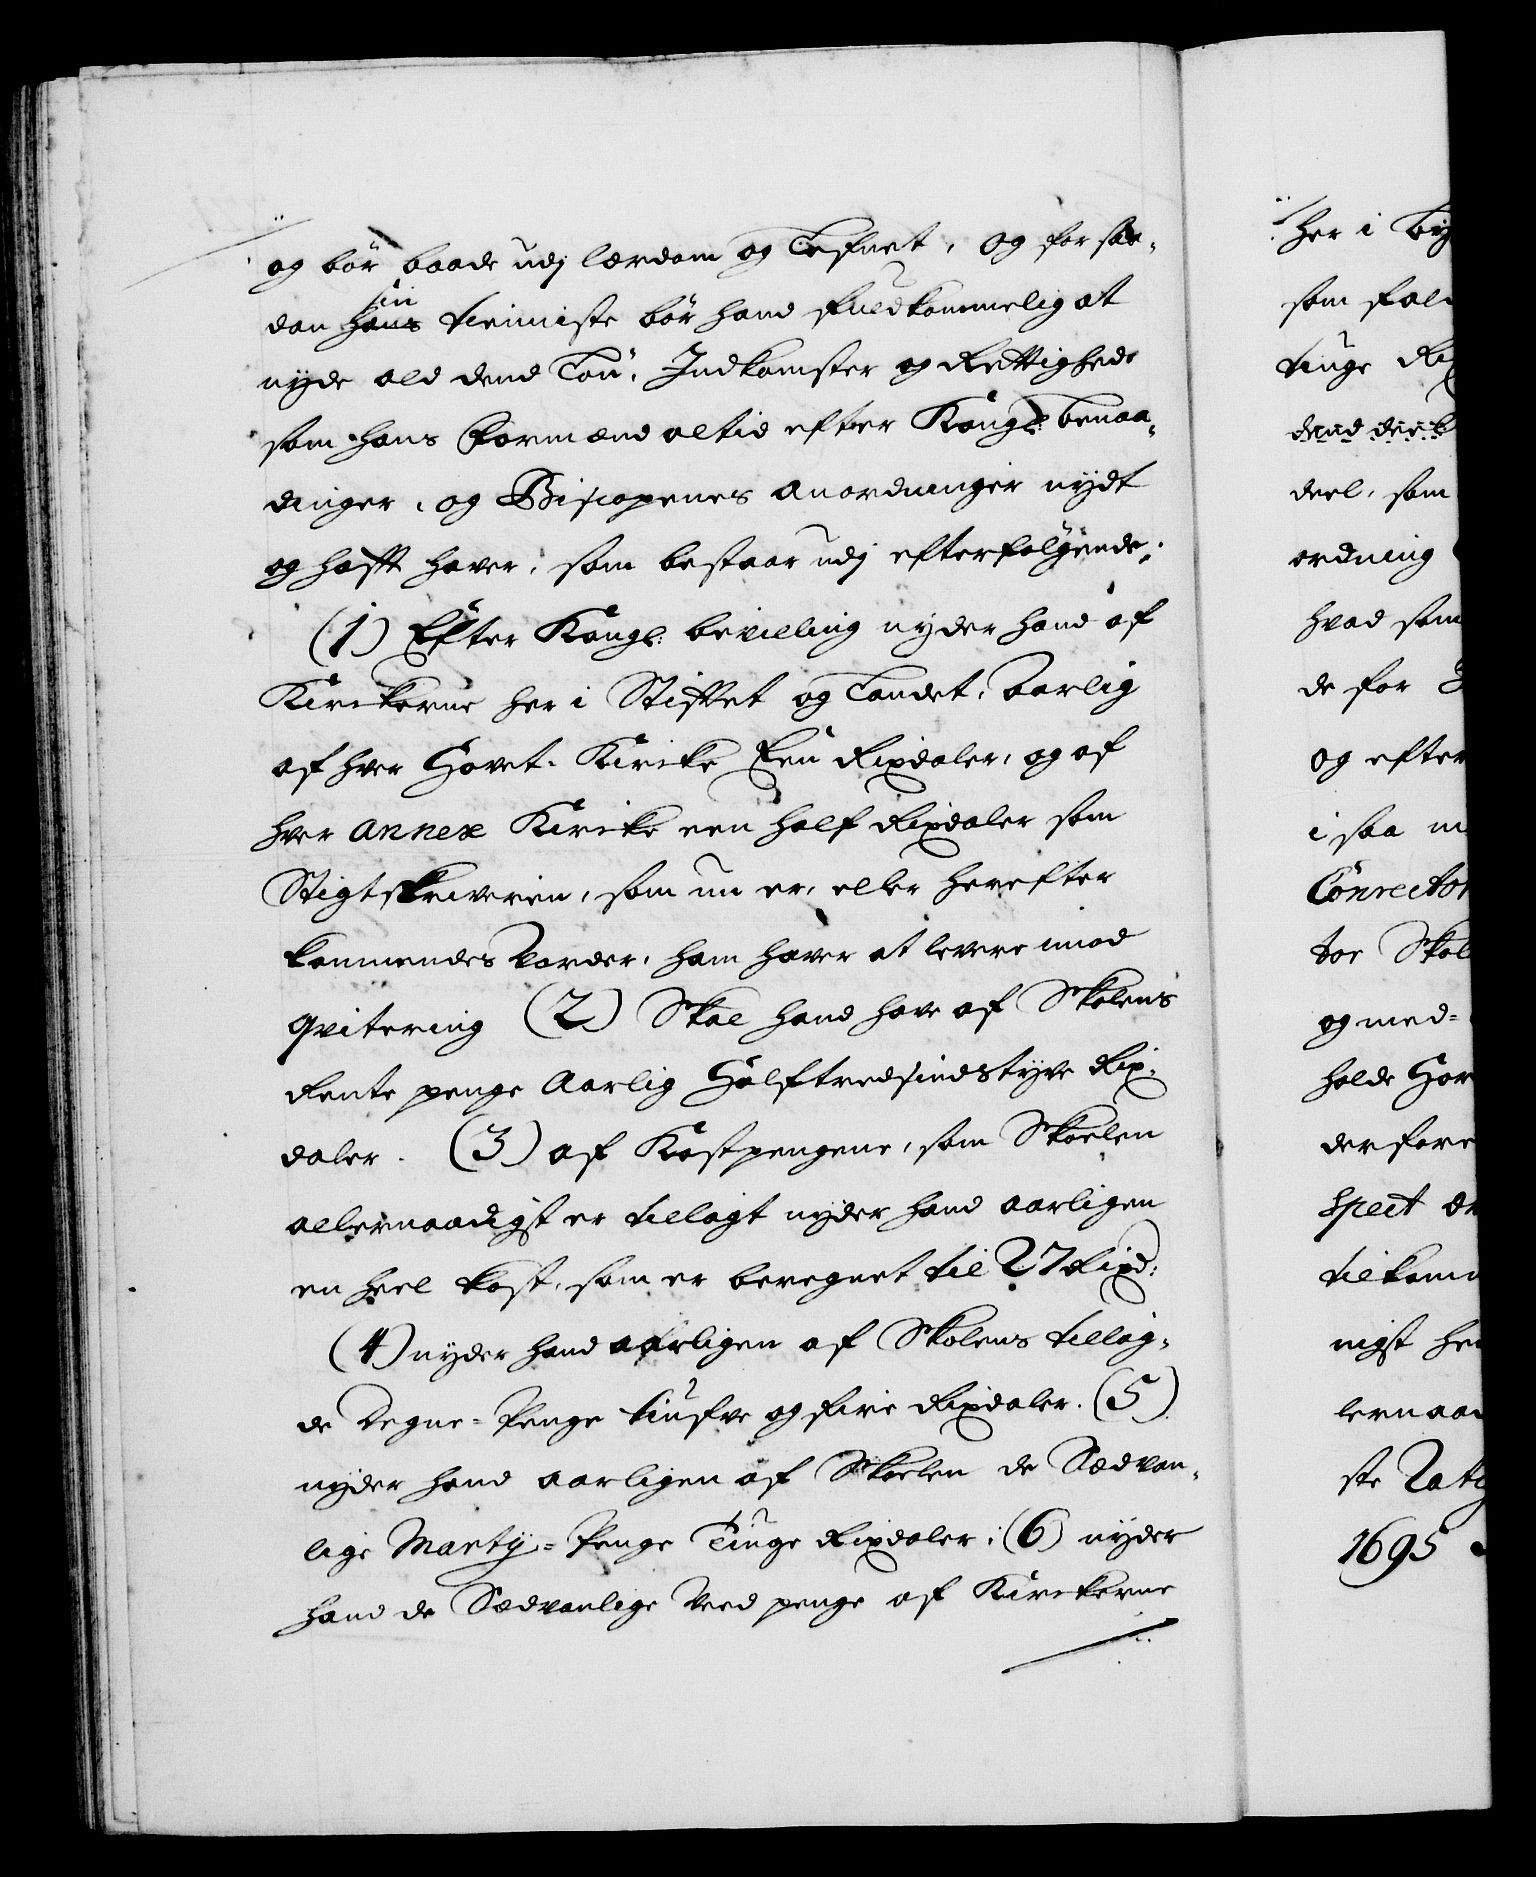 og bör baade udj lærdom og Lefnet, og for saa-
dan hans sin tieniste bör hand fuldkommelig at
nyde ald dend Lön, Indkomster og Rettighed
som hans Formænd altid efter Kongl: benaa-
dinger, og Biscopernes anordninger nydt
og hafft haver, som bestaar udj efterfolgende:
(1) Efter Kongl: bevilling nyder hand af
Kirckerne her i Stifftet og Landet, Aarlig
af hver Hovet-Kircke Een Rixdaler, og af
hver annex Kircke een half Rixdaler som
Stigtskriveren, som nu er, eller herefter
kommendes vorder, ham haver at levere imod
qvitering (2) Skal hand have af Skolens
Rente penge Aarlig Halftredsindstyve Rix-
daler. (3) af Kostpengene, som Skoelen
allernaadigst er tillagt nyder hand aarligen
en heel kost, som er beregnet til 27 Rixd:
(4) nyder hand aarligen af Skolens tillag-
de Degne-Penge tiufve og fire Rixdaler. (5)
nyder hand aarligen af Skoelen de Sædvan-
lige Marty-Penge Tiuge Rixdaler; (6) nyder
hand de Sædvanlige Veed penge af Kirckerne
her i By
som fal
tiuge Rix
deel, som
ordning
hvad som
de for
og efter
i saa m
Conrector
toe Skol
og med-
holde Hor
derfore
spect
tilkom
nigst he
lernaa
ste
1695